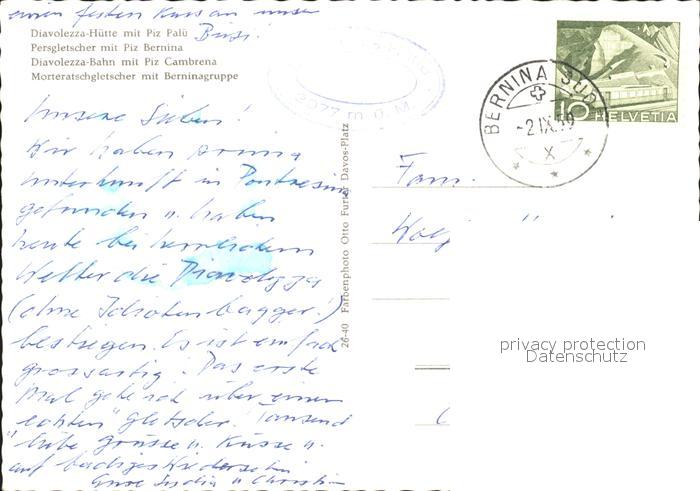 einen festen Kuss an unser
Busi!
Diavolezza-Hütte mit Piz Palü
Persgletscher mit Piz Bernina
Diavolezza-Bahn mit Piz Cambrena
Morteratschgletscher mit Berninagruppe
2977 m ü. M.
BERNINA SUOT
-2.IX.59
X
10 HELVETIA
Unsere Lieben!
Wir haben prima
Unterkunft in Pontresina
gefunden u. haben
heute bei herrlichem
Wetter die Diavolezza
(ohne Idiotenbagger!)
bestiegen. Es ist einfach
grossartig. Das erste
Mal gehe ich über einen
"echten" Gletscher. Tausend
liebe Grüsse u. Küsse u.
auf baldiges Wiedersehen
Eure u Christian
26-40 Farbenphoto Otto Furter Davos-Platz
Fam.
privacy protection
Datenschutz